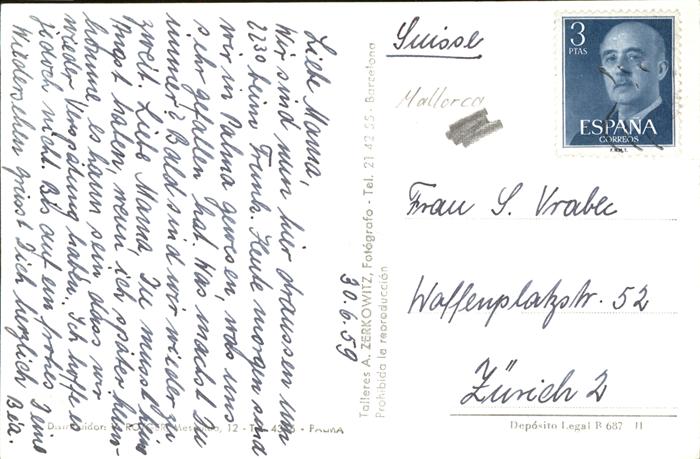 Liebe Mama,
Wir sind nun hier draussen um
2230 beim Trunk. Heute morgen sind
wir in Palma gewesen, was uns
sehr gefallen hat. Was machst Du
immer? Bald sind wir wieder zu
zweit. Liebe Mama, Du musst keine
Angst haben, wenn ich später heim-
komme, es kann sein, dass wir
wieder Verspätung haben. Ich hoffe es
jedoch nicht. Bis auf ein frohes
Wiedersehen grüsst Dich herzlich Deine
Bea.
30.6.59
Talleres A. ZERKOWITZ, Fotógrafo - Tel. 21 42 55 - Barcelona
Prohibida la reproducción
12 - PALMA
Suisse
Mallorca
3
PTAS
ESPAÑA
CORREOS
F.N.M.T.
Frau S. Vrabec
Waffenplatzstr. 52
Zürich 2
Depósito Legal B 687 II